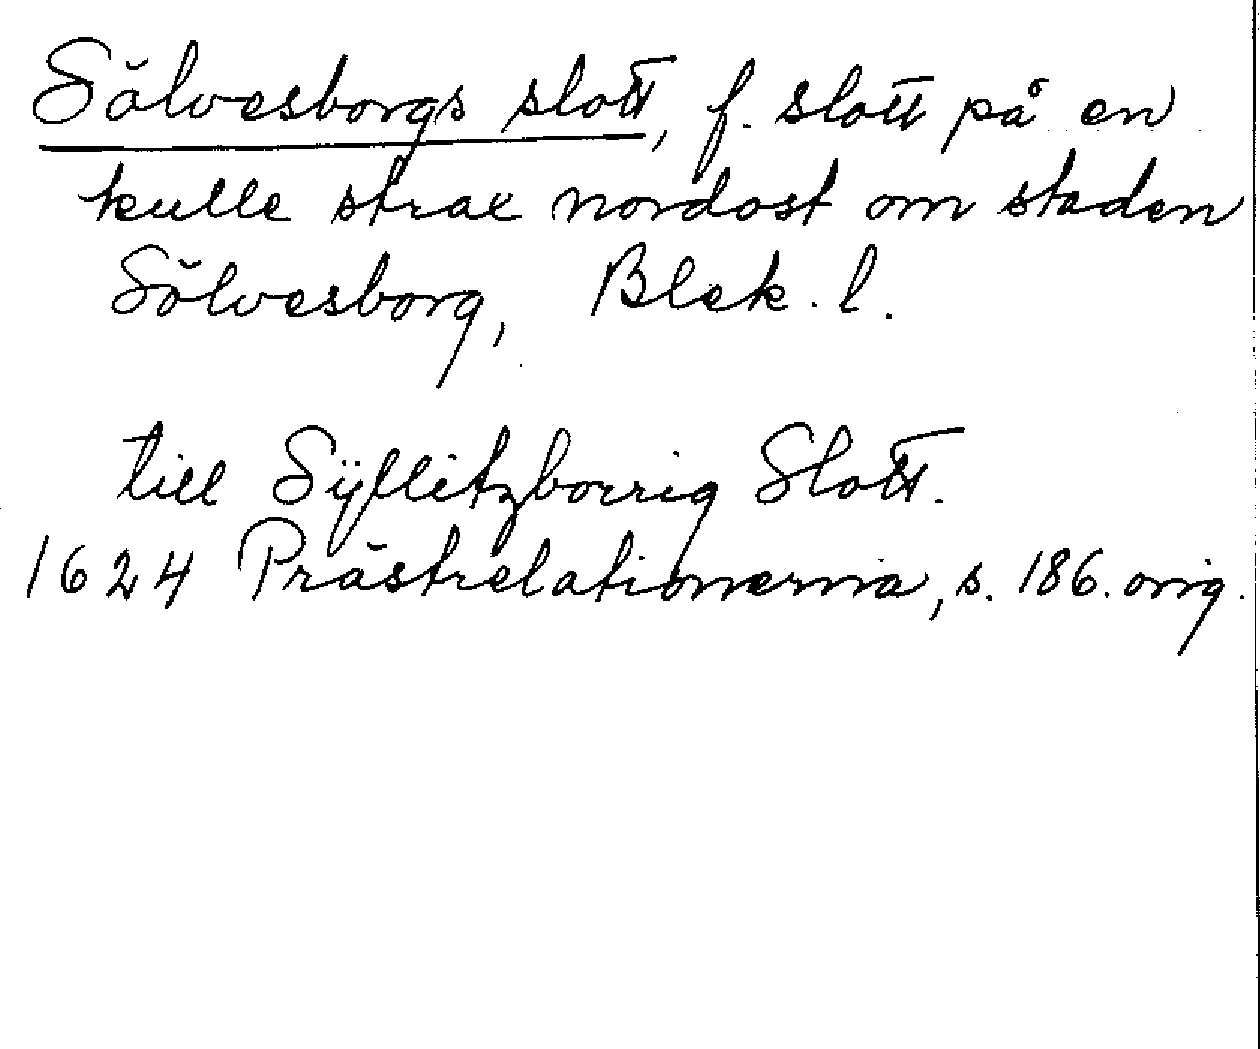 Sölvesborgs slott, f. slott på en
kulle strax nordost om staden
Sölvesborg, Blek. l.
till Sÿllitzborrig Slott.
1624 Prästrelationerna, s. 186. orig.